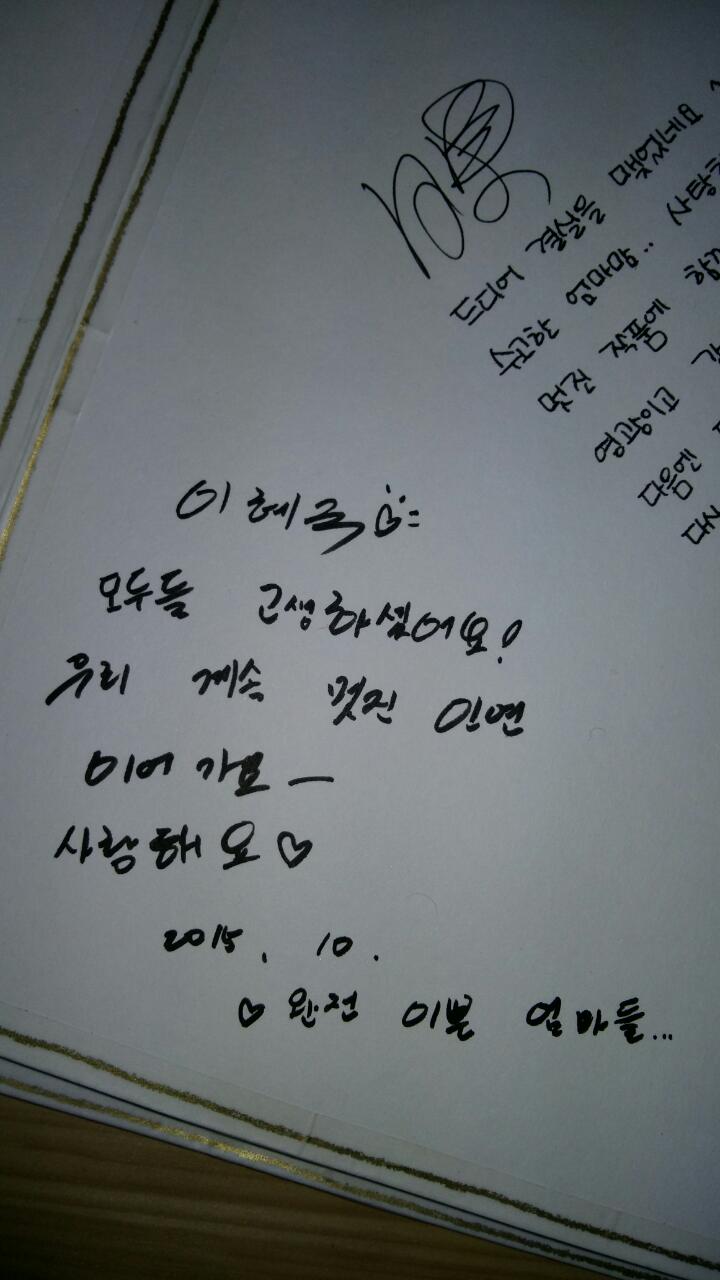 드디어 결실을 맺었네요
수고한 엄마맘.. 사랑
멋진 작품에 함
영광이고
다음엔
다시
이혜국
모두들 고생하셨어요!
우리 계속 멋진 인연
이어 가요 —
사랑해요 ♡
2015. 10.
♡ 완전 이쁜 엄마들...